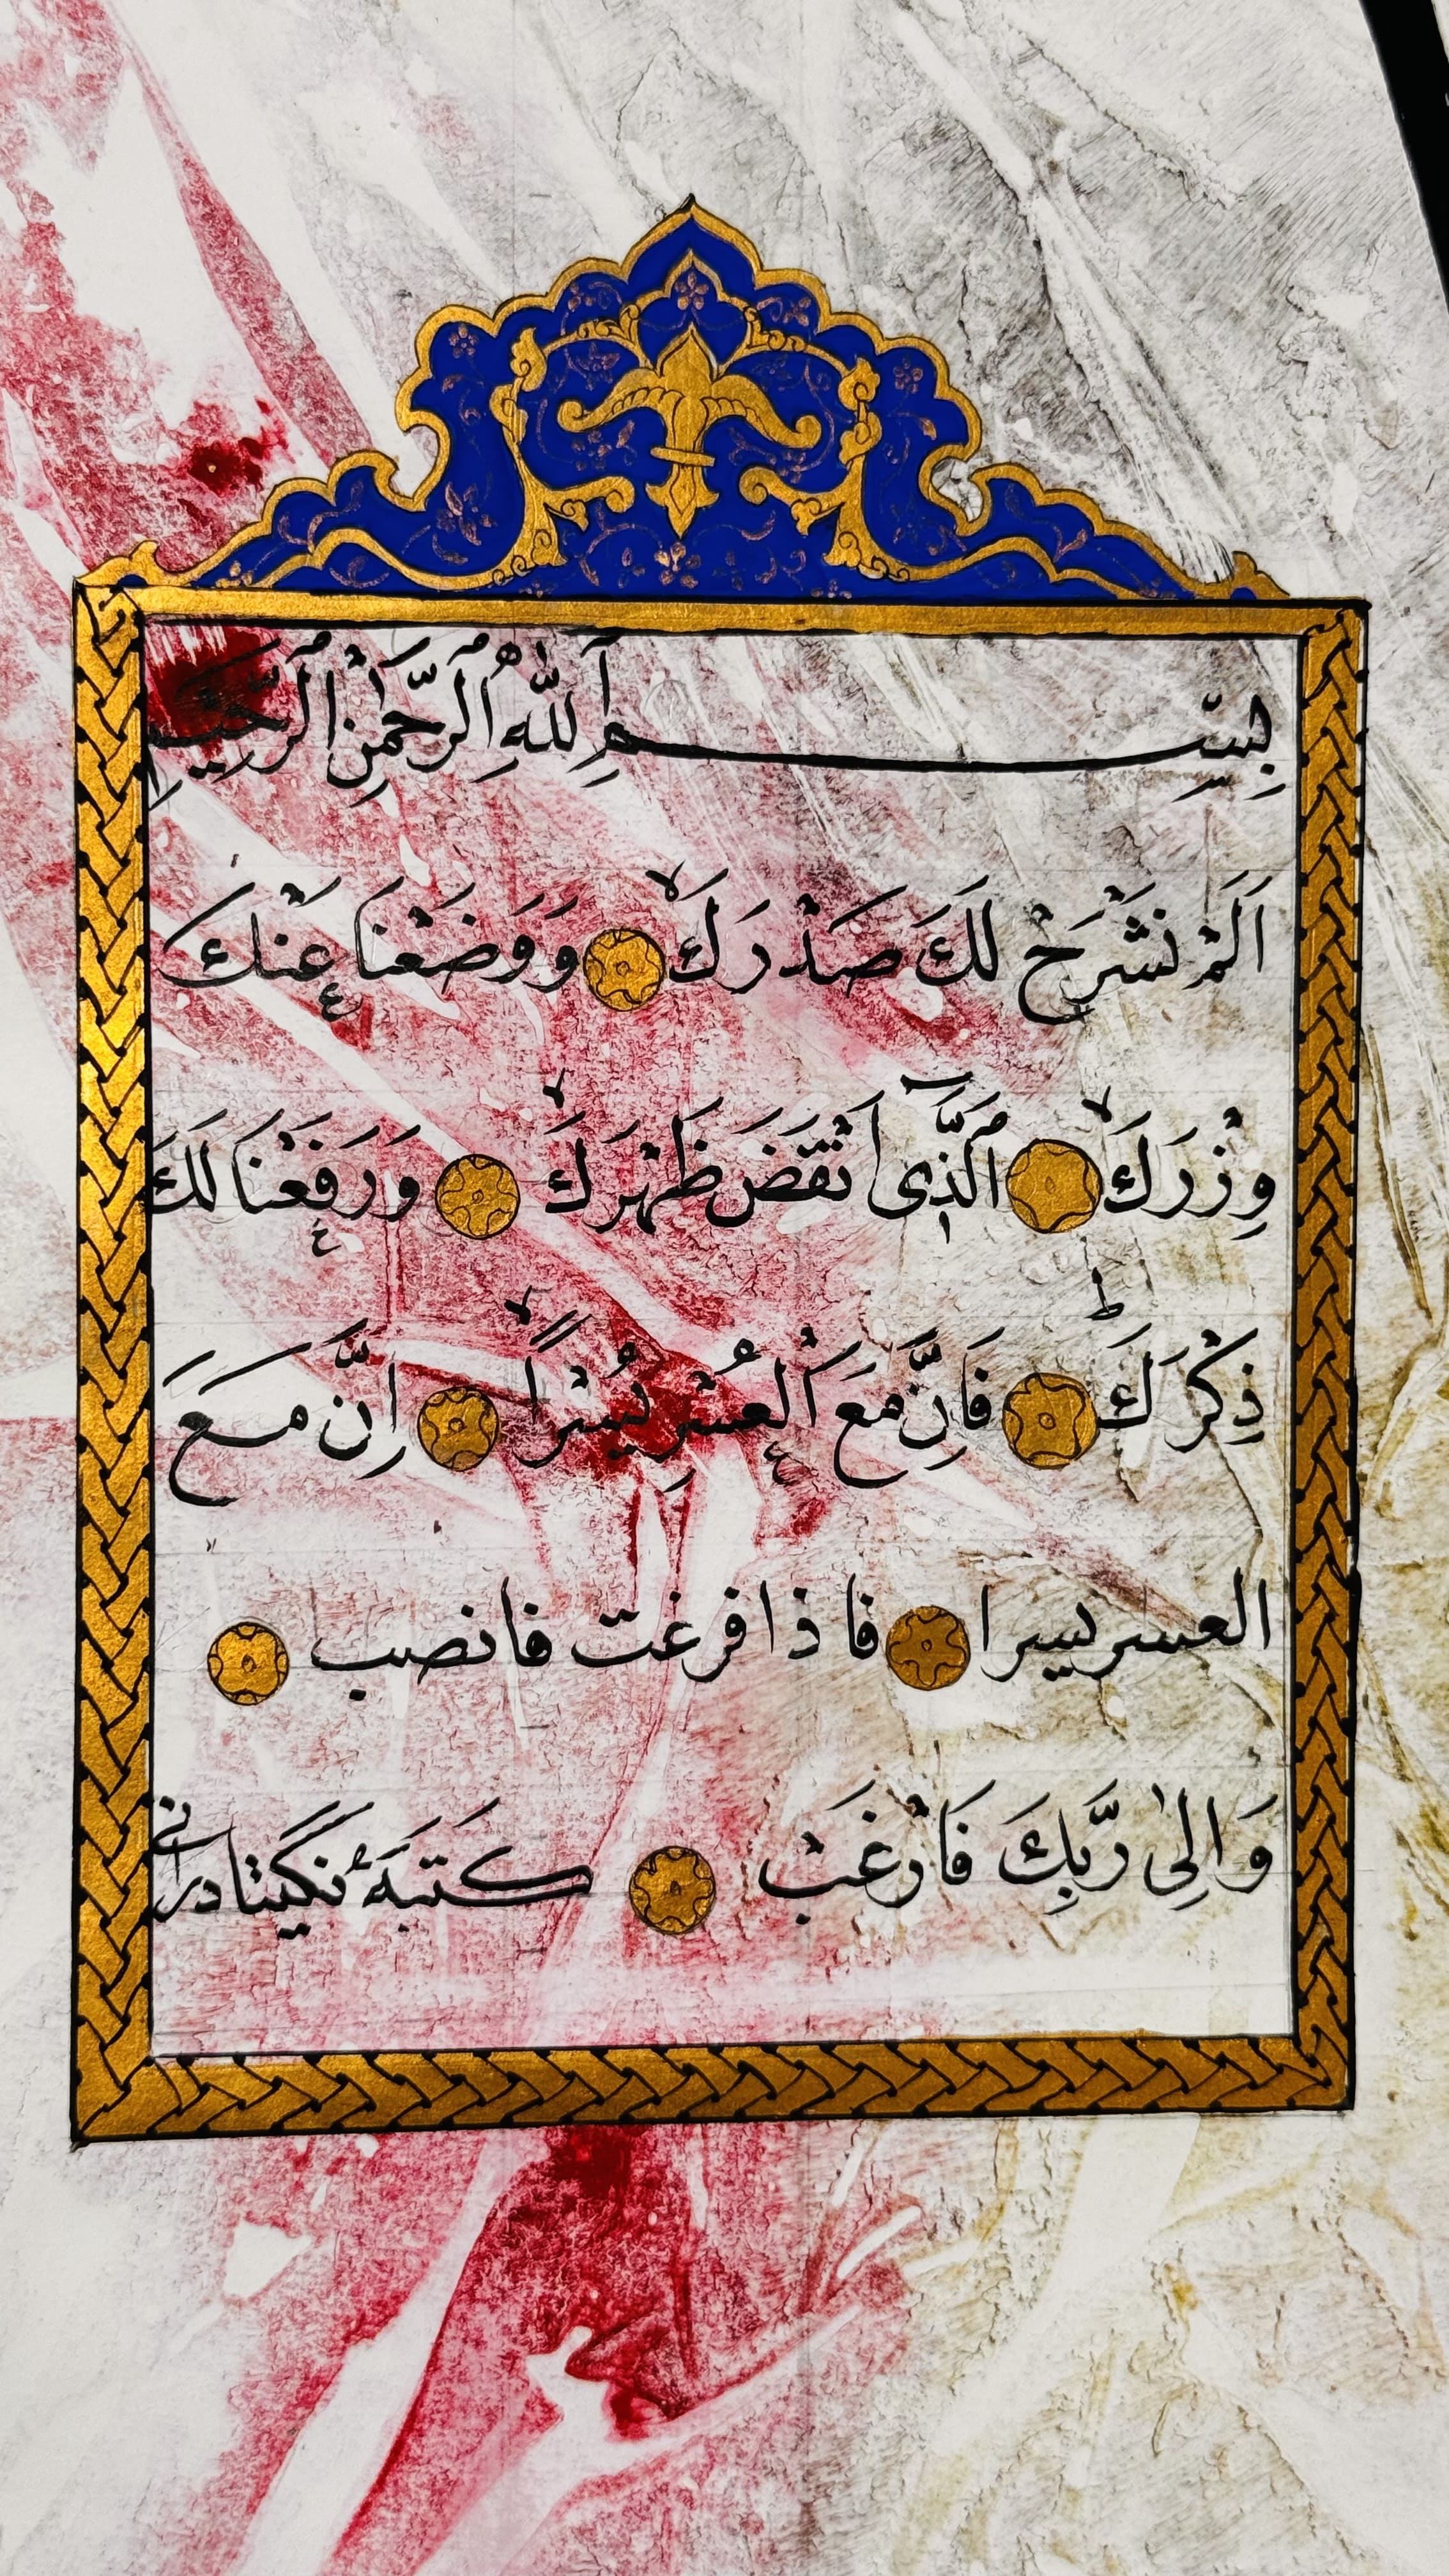 بِسْــــــــمِ ٱللّٰهِ ٱلرَّحْمٰنِ ٱلرَّحِيمِ
اَلَمْ نَشْرَحْ لَكَ صَدْرَكَ وَوَضَعْنَا عَنْكَ
وِزْرَكَ الَّذِىٓ اَنْقَضَ ظَهْرَكَ وَرَفَعْنَا لَكَ
ذِكْرَكَ فَاِنَّ مَعَ الْعُسْرِ يُسْرًا اِنَّ مَعَ
العسر يسرا فاذا فرغت فانصب
وَالِىٰ رَبِّكَ فَارْغَبْ كَتَبَهُ نگیتا درانی